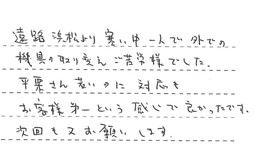 遠路浜松より寒い中一人で外での
機具の取り変えご苦労様でした。
平栗さん若いのに対応も
お客様第一という感じで良かったです。
次回も又お願いします。